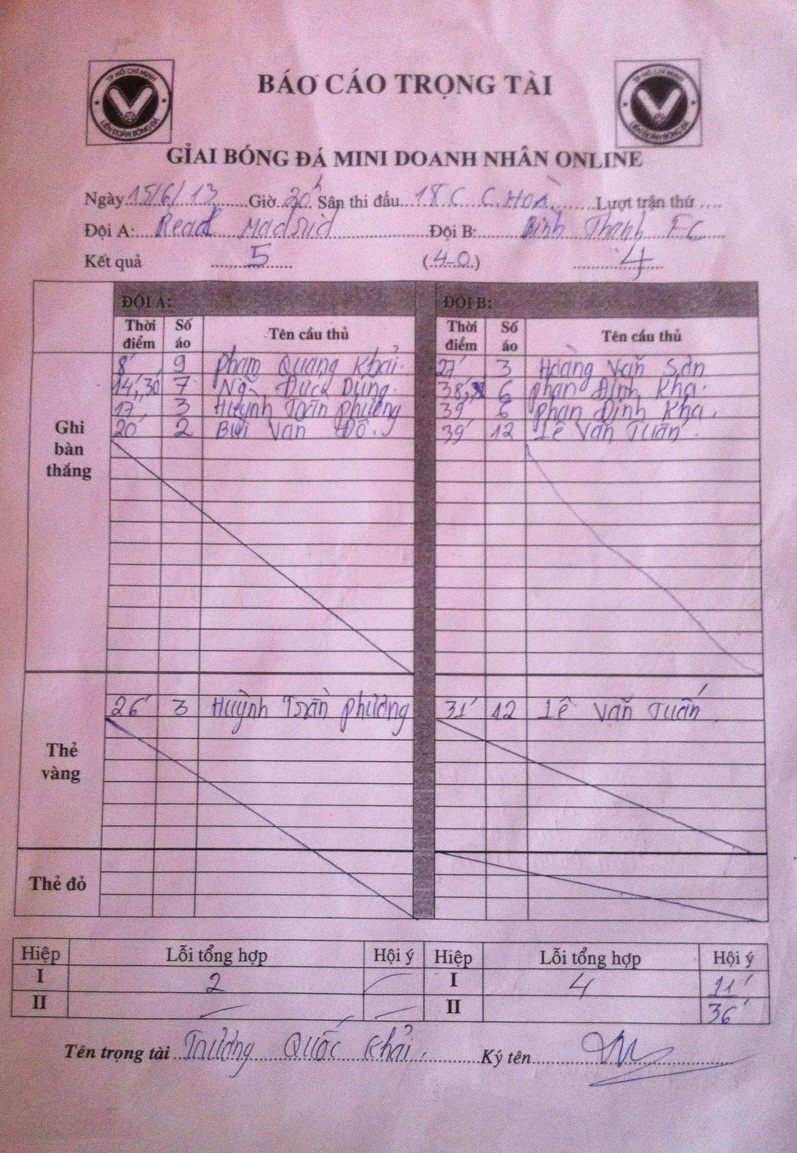 TP HỒ CHÍ MINH
LIÊN ĐOÀN BÓNG ĐÁ
BÁO CÁO TRỌNG TÀI
TP HỒ CHÍ MINH
LIÊN ĐOÀN BÓNG ĐÁ
GIẢI BÓNG ĐÁ MINI DOANH NHÂN ONLINE
Ngày 15/6/13 Giờ. 20h Sân thi đấu 18C C.Hoà Lượt trận thứ ....
Đội A: Read Madrid Đội B: Bình Thạnh FC
Kết quả 5 (4-0) 4
ĐỘI A: ĐỘI B:
Thời điểm Số áo Tên cầu thủ Thời điểm Số áo Tên cầu thủ
Ghi bàn thắng
8' 9 Phạm Quang Khải. 27' 3 Hoàng Văn Sơn
14', 30' 7 Ngô Đức Dũng. 38', 6 Phan Đình Kha.
17' 3 Huỳnh Trần Phương 39' 6 Phan Đình Kha.
20' 2 Bùi Văn Đô. 39' 12 Lê Văn Tuấn.
Thẻ vàng
26' 3 Huỳnh Trần Phương 31' 12 Lê Văn Tuấn
Thẻ đỏ
Hiệp Lỗi tổng hợp Hội ý Hiệp Lỗi tổng hợp Hội ý
I 2 I 4 11'
II II 36'
Tên trọng tài Trương Quốc Khải. Ký tên